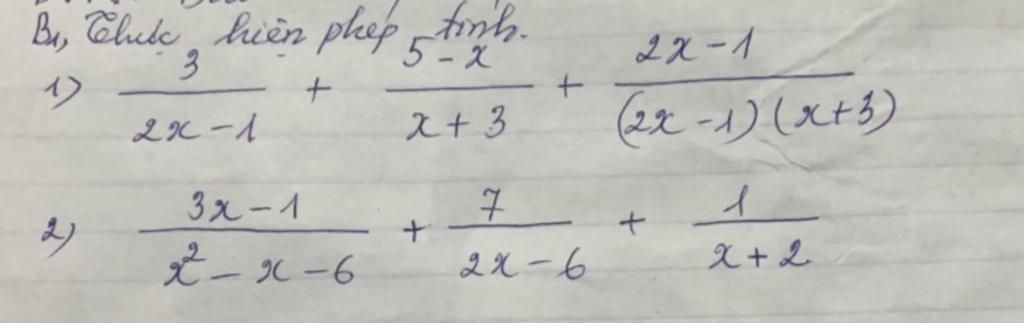 B1, Thực hiện phép tính.
1) 3/(2x-1) + (5-x)/(x+3) + (2x-1)/((2x-1)(x+3))
2) (3x-1)/(x²-x-6) + 7/(2x-6) + 1/(x+2)